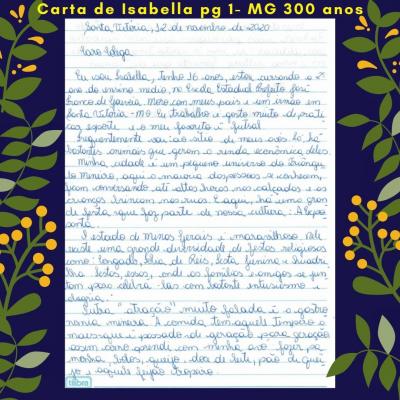 Carta de Isabella pg 1- MG 300 anos
Santa Vitória, 12 de novembro de 2020
Caro colega
Eu sou Isabella, tenho 16 anos, estou cursando o 2º
ano do ensino medio, na Escola Estadual Prefeito José
Franco de Gouveia. Moro com meus pais e um irmão em
Santa Vitória-MG. Eu trabalho e gosto muito de prati-
car esporte e o meu favorito é futsal.
Frequentemente vou ao sítio de meus avós. Lá há
bastantes animais que geram a renda econômica deles.
Minha cidade é um pequeno universo do Triângu-
lo Mineiro, aqui a maioria das pessoas se conhecem,
ficam conversando até altas horas nas calçadas e as
crianças brincam nas ruas. E aqui, há uma gran-
de festa que faz parte de nossa cultura: A Expo
O estado de Minas Gerais é maravilhoso. Nele
existe uma grande diversidade de festas religiosas
como: Congado, Folia de Reis, festa Junina e quadri-
lha. Festas, essas, onde as famílias e amigos se jun-
tam para celebrá-las com bastante entusiasmo e
alegria.
Outra "atração" muito falada é a gastro-
nomia mineira. A comida tem aquele tempero a
mais que é passado de geração para geração
assim como aprendi com minha avó fazer pa-
monha, bolos, queijo, doce de leite, pão de quei-
jo e aquele feijão tropeiro.
tilibra